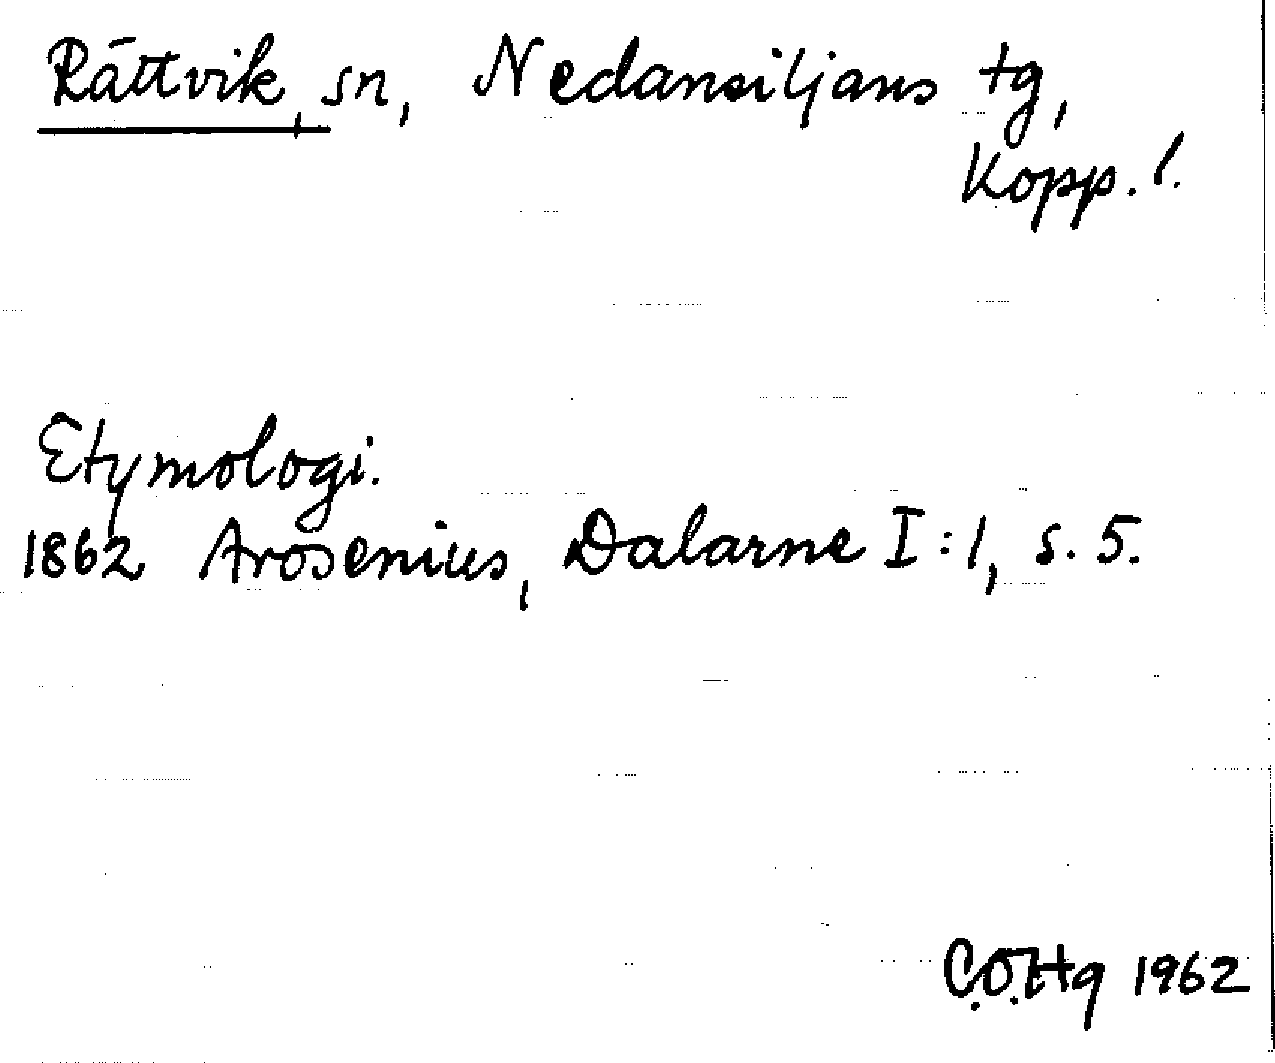 Rättvik, sn, Nedansiljans tg,
Kopp. l.
Etymologi.
1862 Arosenius, Dalarne I:1, s. 5.
C.O.Hg 1962